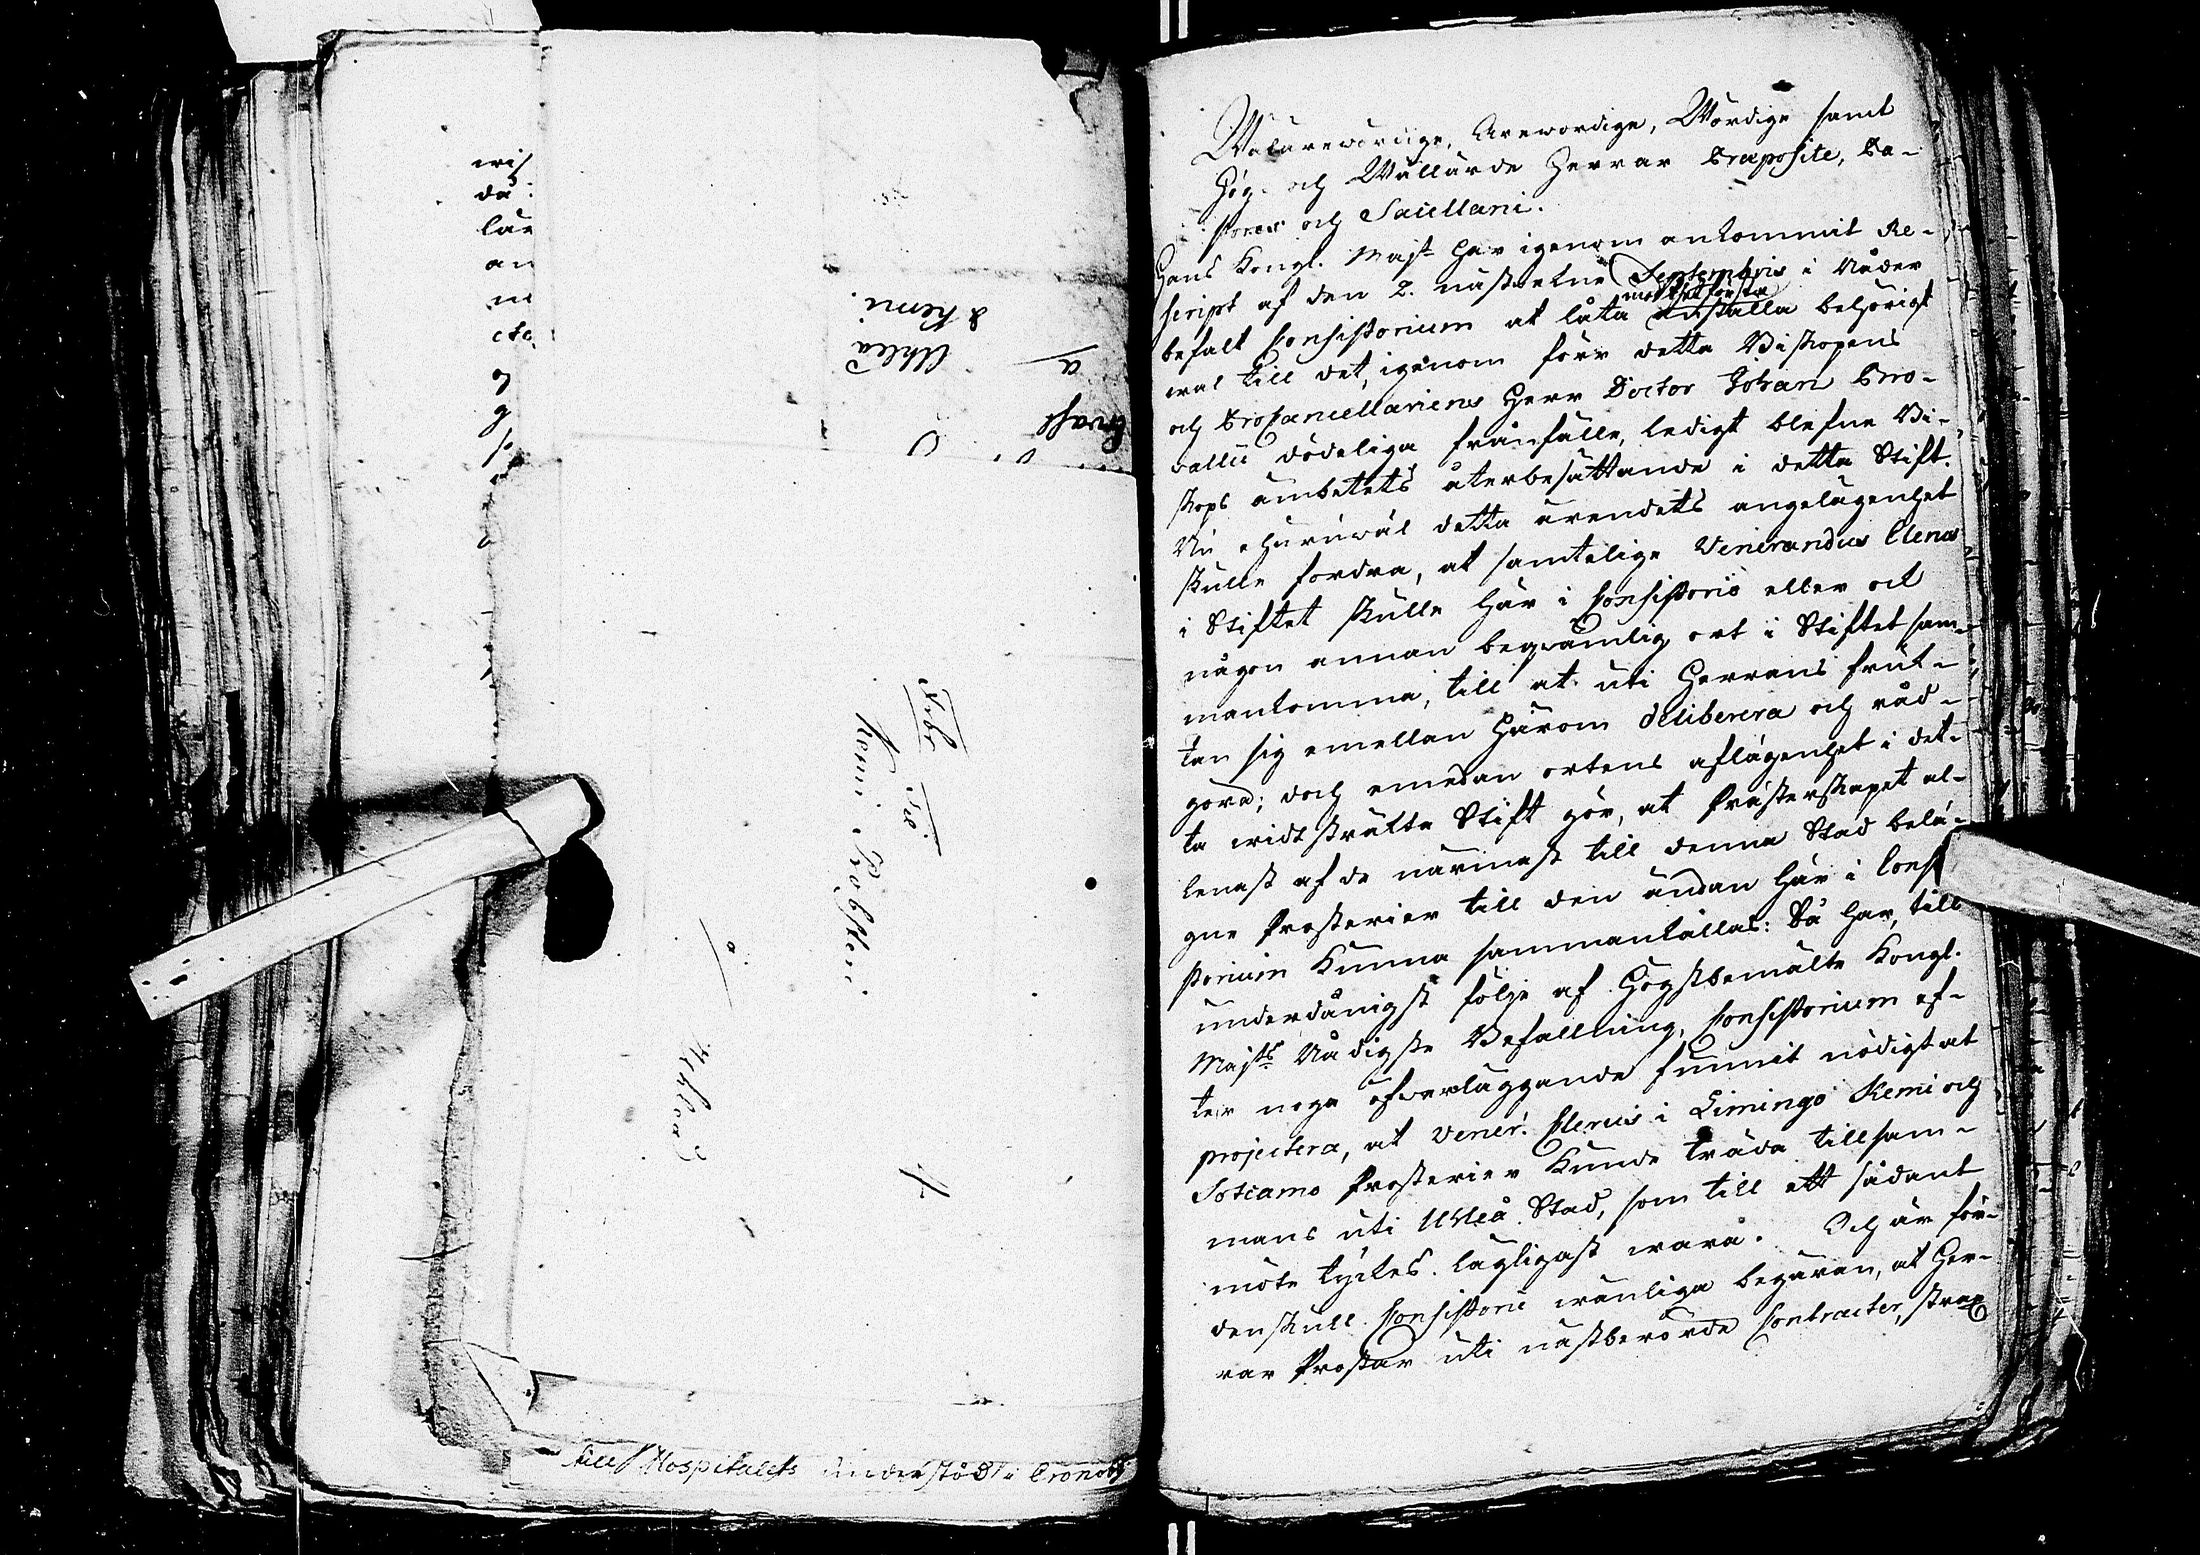 wis
då
lär
an
m
cto
& Kemi.
Uhleå
a
Prost
Kemi Probsten
Uhleå
till Hospitalets understöd i Cronoby
Wälärewördige, Ärewördige, Wördige samt
Hög- och Wällärde Herrar Præposite, Pa-
stores och Sacellani.
Hans Kongl. Majst har igenom ankommit Re-
script af den 2. nästwekne Septembris i Nåder
befalt Consistorium at låta anställa behörigt
med thet första
wal till det, igenom förr detta Biskopens
och Procancellariens Herr Doctor Johan Bro-
vallii dödeliga frånfälle, ledigt blefne Bi-
skops ämbetets återbesättande i detta Stift.
Nu ehuruwäl detta ärendets angelägenhet
skulle fordra, at samtelige Venerandus Clerus
i Stiftet skulle här i Consistorio eller ock
någon annan beqwämlig ort i Stiftet sam-
mankomma, till at uti Herrans fruk-
tan sig emellan härom deliberera och råd-
göra; doch emedan ortens aflägenhet i det-
ta widtsträkta Stift gör, at Prästerskapet al-
lenast af de närmast till denna Stad belä-
gne Prosterier till den ändan här i Consi
storium kunna sammankallas: Så har, till
underdånigst följe af Högstbemälte Kongl.
Majsts Nådigste Befallning, Consistorium ef-
ter noga öfwerläggande funnit nödigt at
projectera, at Vener. Clerus i Limingo Kemi och
Sotcamo Prosterier kunde träda tillsam-
mans uti Uhleå Stad, som till ett sådant
möte tyckes lägligast wara. Och är för-
denskull Consistorii wänliga begäran, at Her-
rar Prostar uti nästberörde Contracter, strax